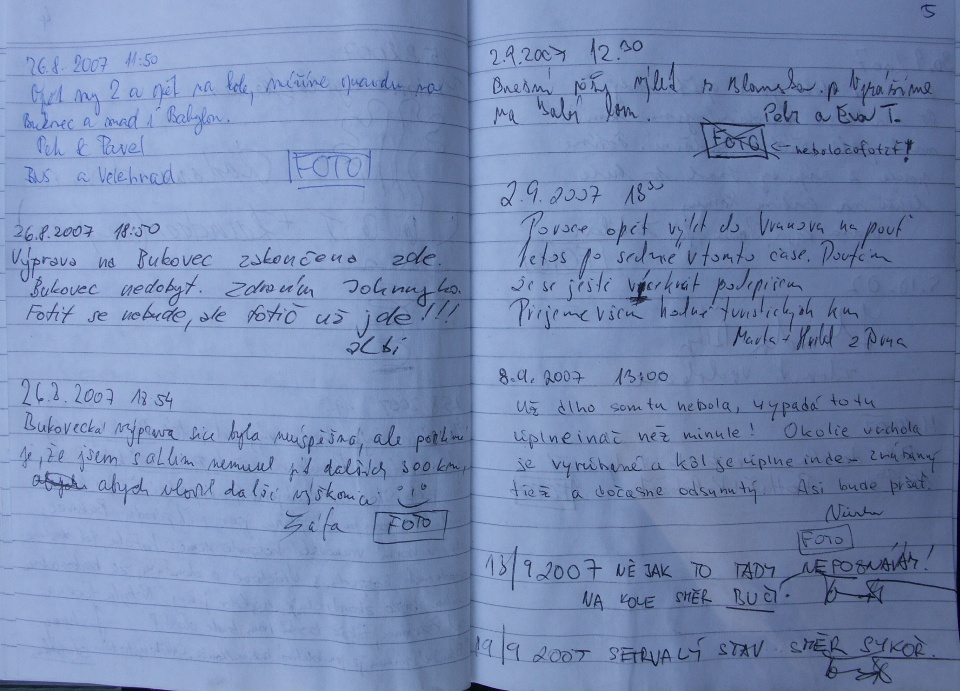 26.8. 2007 11:50
my 2 a opět na kole, míříme opravdu na
Bukovec a snad i Babylon.
Petr & Pavel
a Velehrad
FOTO
26.8.2007 18:50
Výprava na Bukovec zakončena zde.
Bukovec nedobyt. Zdravím
Fotit se nebude, ale fotič už jde!!!
26.8.2007 18:54
Bukovecká výprava sice byla neúspěšná, ale
je, že jsem s nemusel jít dalších 300 km,
abych další výškovia
Žáfa
FOTO
5
2.9.2007 12:30
Dnešní pěší výlet z Blanska. p Vyrážíme
na Babí lom.
Petr a Eva T.
FOTO
← nebolo čo fotiť!
2.9.2007 18°°
Po roce opět výlet do Vranova na pouť
letos po sedmé v tomto čase. Doufám
že se ještě podepíšem
Přejeme všem hodně turistických km
z Brna
8.9. 2007 13:00
Už dlho som tu nebola, vypadá to tu
úplne ináč než minule! Okolie vrcholu
je vyrúbané a kôl je úplne inde -
tiež a dočasne odsunutý. Asi bude pršať.
FOTO
13/9 2007 NĚJAK TO TADY NEPOZNÁVÁM!
NA KOLE SMĚR BUČÍ.
19/9 2007 SETRVALÝ STAV SMĚR SÝKOŘ.